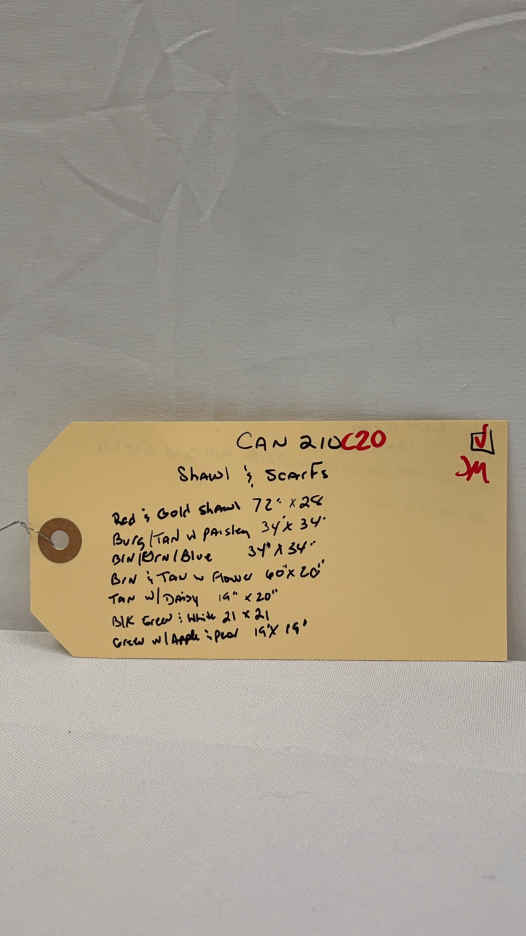 CAN 210C20
JM
Shawl & Scarfs
Red & Gold Shawl 72" x 28
Burg/TAN w PAisley 34" x 34"
BRN/GRN/Blue 34" x 34"
BRN & TAN w Flower 60" x 20"
TAN w/Daisy 19" x 20"
BLK Green & White 21 x 21
Green w/Apple & Pear 19" x 19"